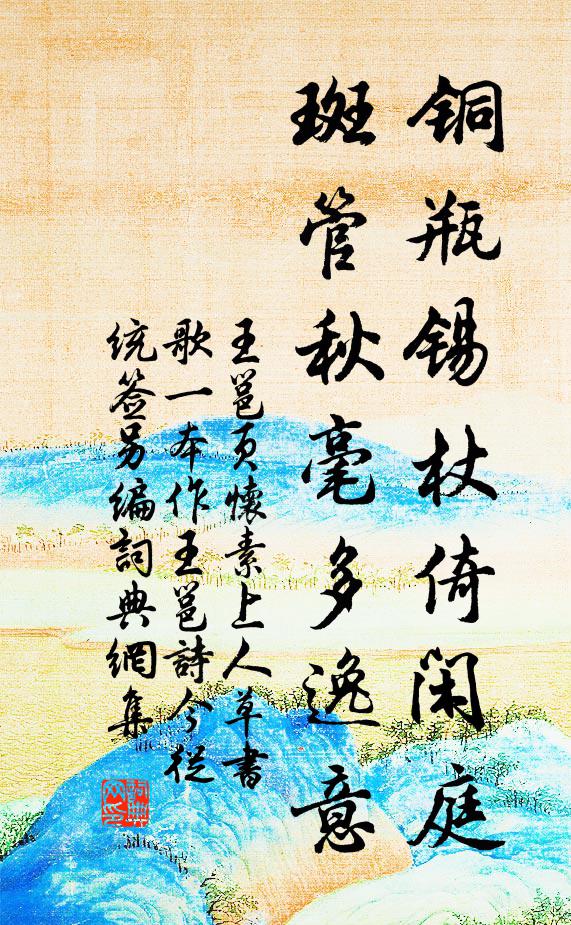 铜瓶锡杖倚闲庭
斑管秋毫多逸意
王邕页懷素上人草書
歌一本作王邕詩今從
统签另编詞典網集